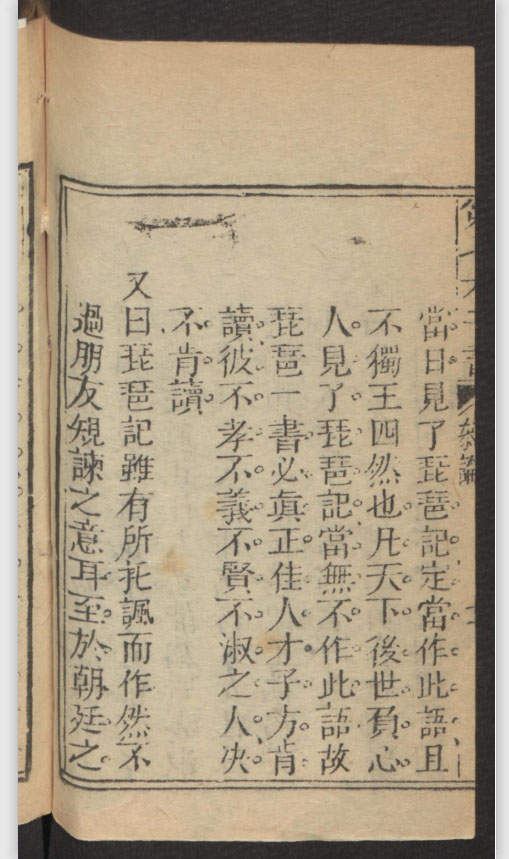 第七才子書
總論
當日見了琵琶記定當作此語且
不獨王四然也凡天下後世負心
人見了琵琶記當無不作此語故
琵琶一書必眞正佳人才子方肯
讀彼不孝不義不賢不淑之人决
不肯讀
又曰琵琶記雖有所托諷而作然不
過朋友規諫之意耳至於朝廷之